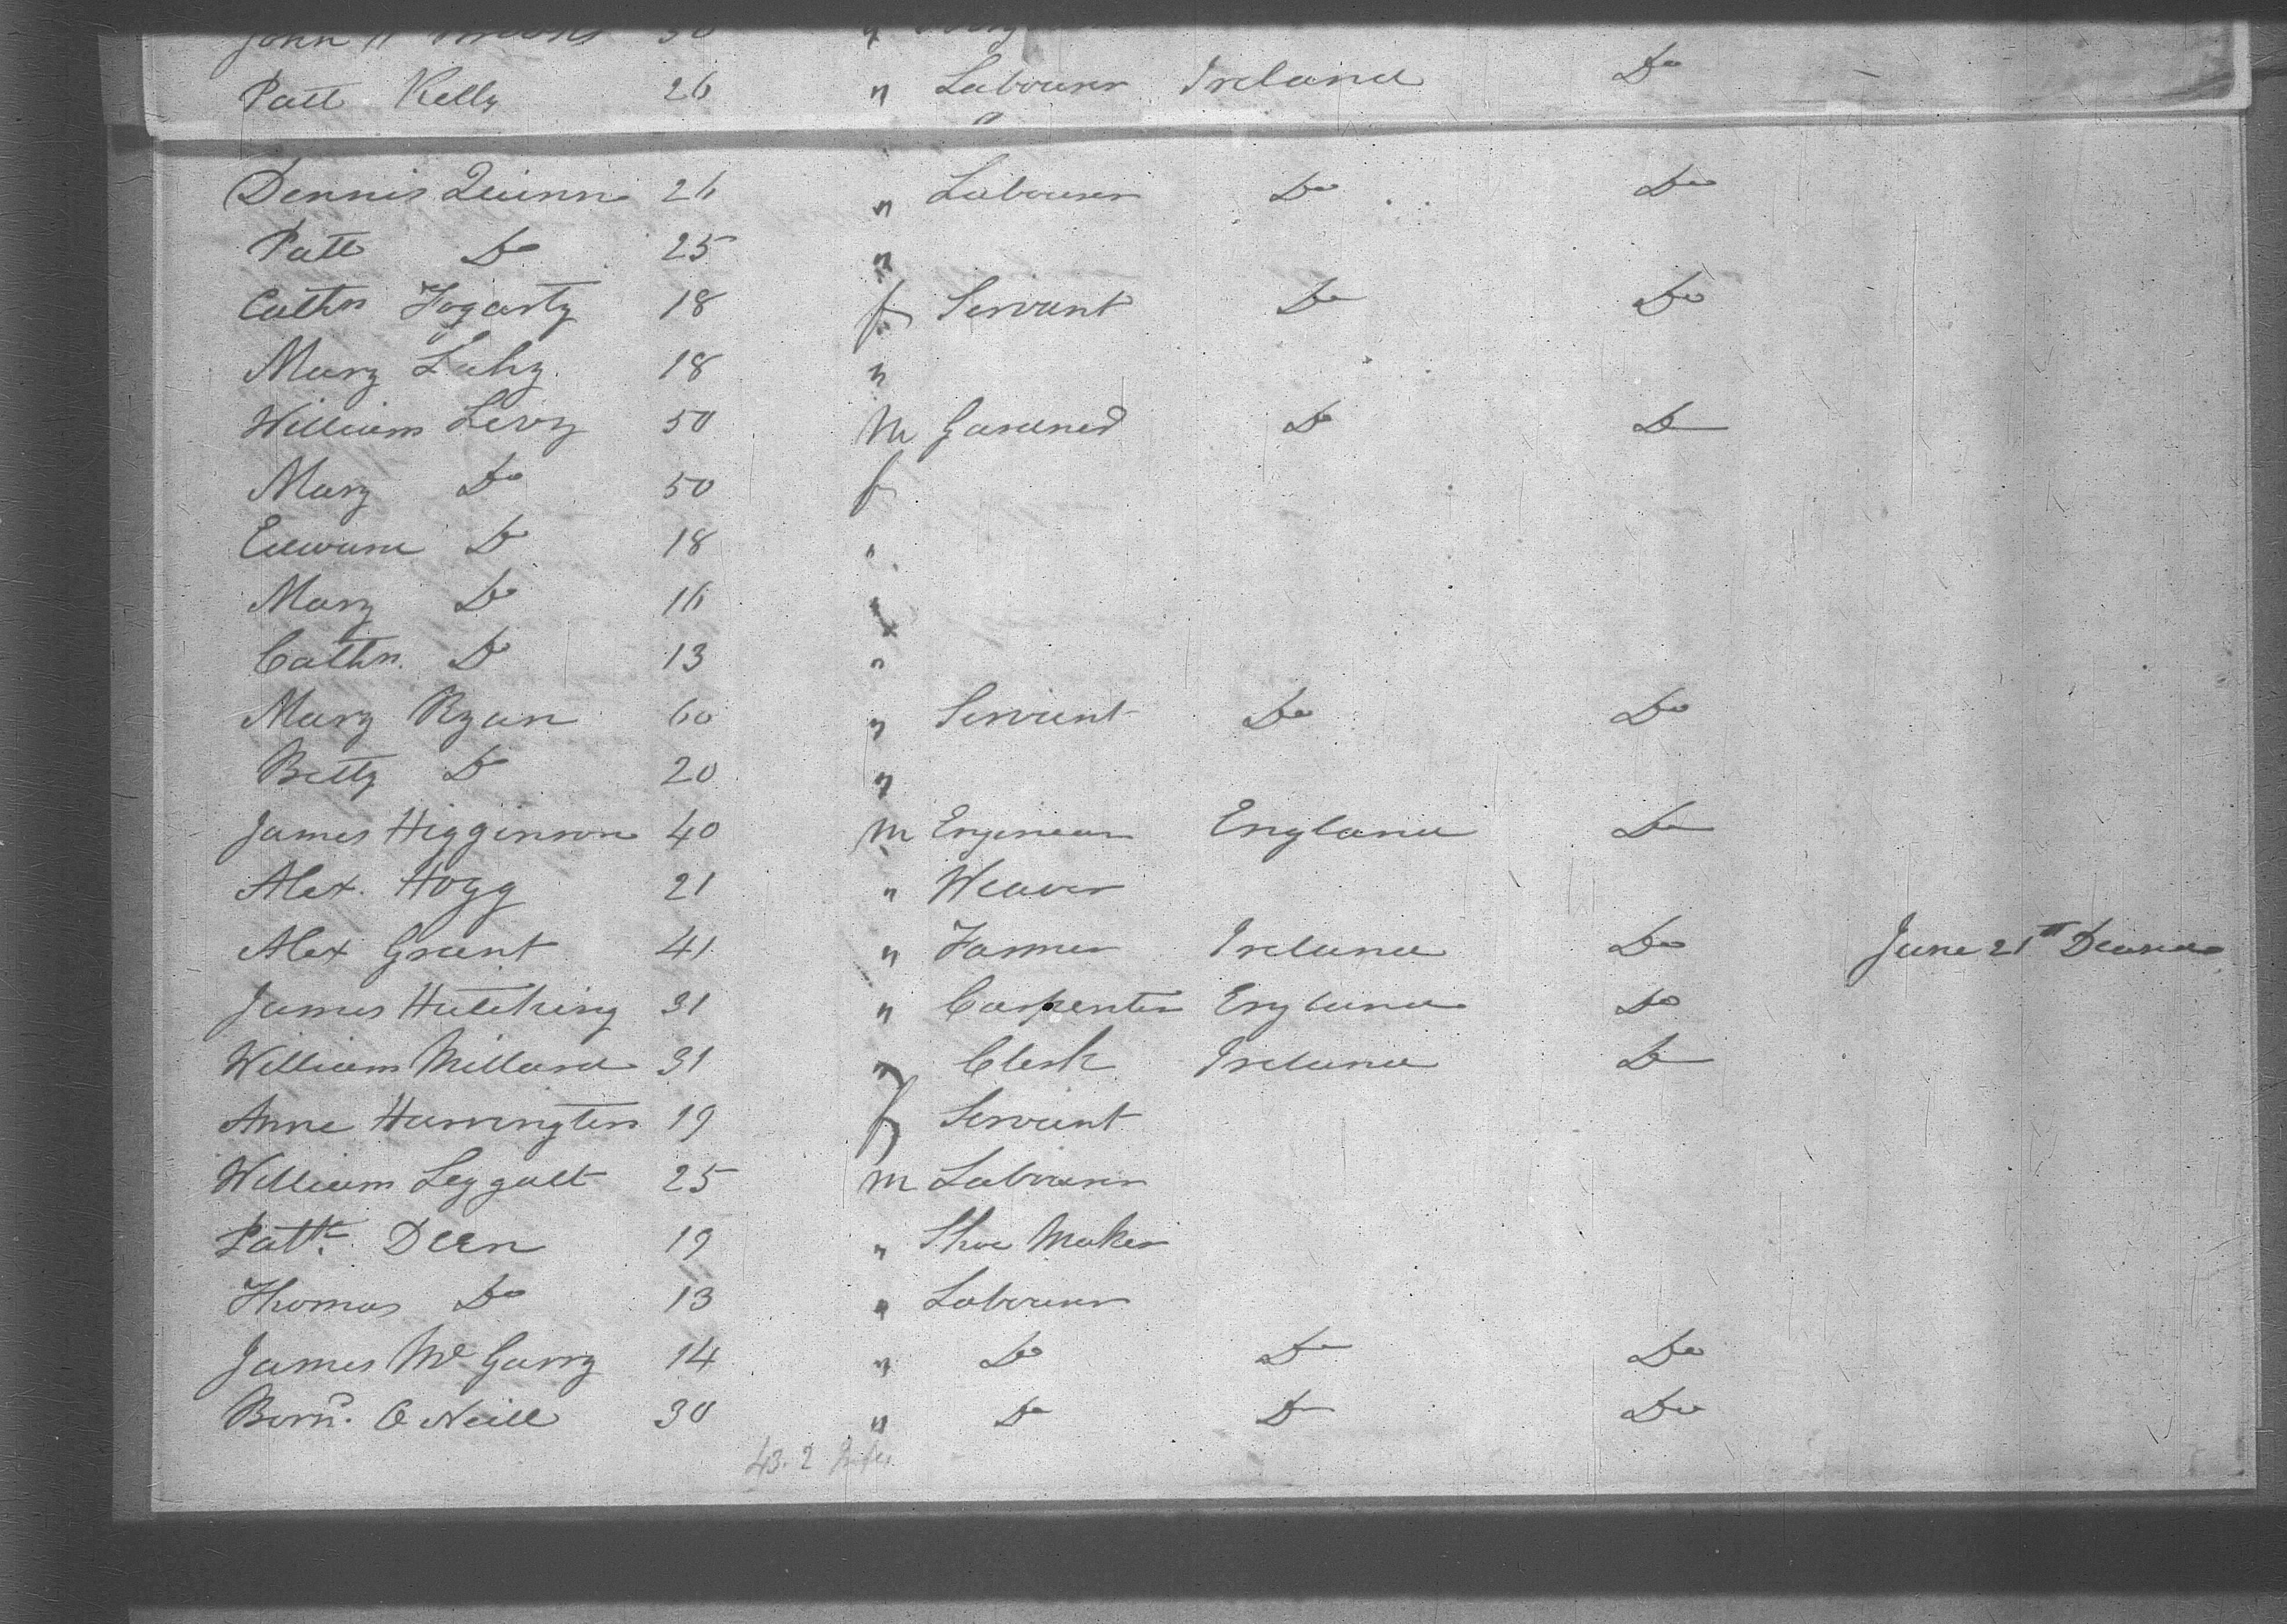 John
Patt Kelly 26 " Labourer Ireland Do
Dennis Quinn 26 " Labourer Do Do
Patt Do 25 "
Cathn Fogarty 18 f Servant Do Do
Mary Luhy 18 "
William Levy 50 M Gardner Do Do
Mary Do 50 f
Edward Do 18 "
Mary Do 16 "
Cathn. Do 13 "
Mary Ryan 60 " Servant Do Do
Betty Do 20 "
James Higginson 40 M Engineer England Do
Alex. Hogg 21 " Weaver
Alex Grant 41 " Farmer Ireland Do June 21st Deceased
James Hutching 31 " Carpenter England Do
William Millard 31 " Clerk Ireland Do
Anne Harrington 19 f Servant
William Leggatt 25 M Labourer
Patk. Deen 19 " Shoe Maker
Thomas Do 13 " Labourer
James McGarry 14 " Do Do Do
Bernd. O Neill 30 " Do Do Do
43. 2